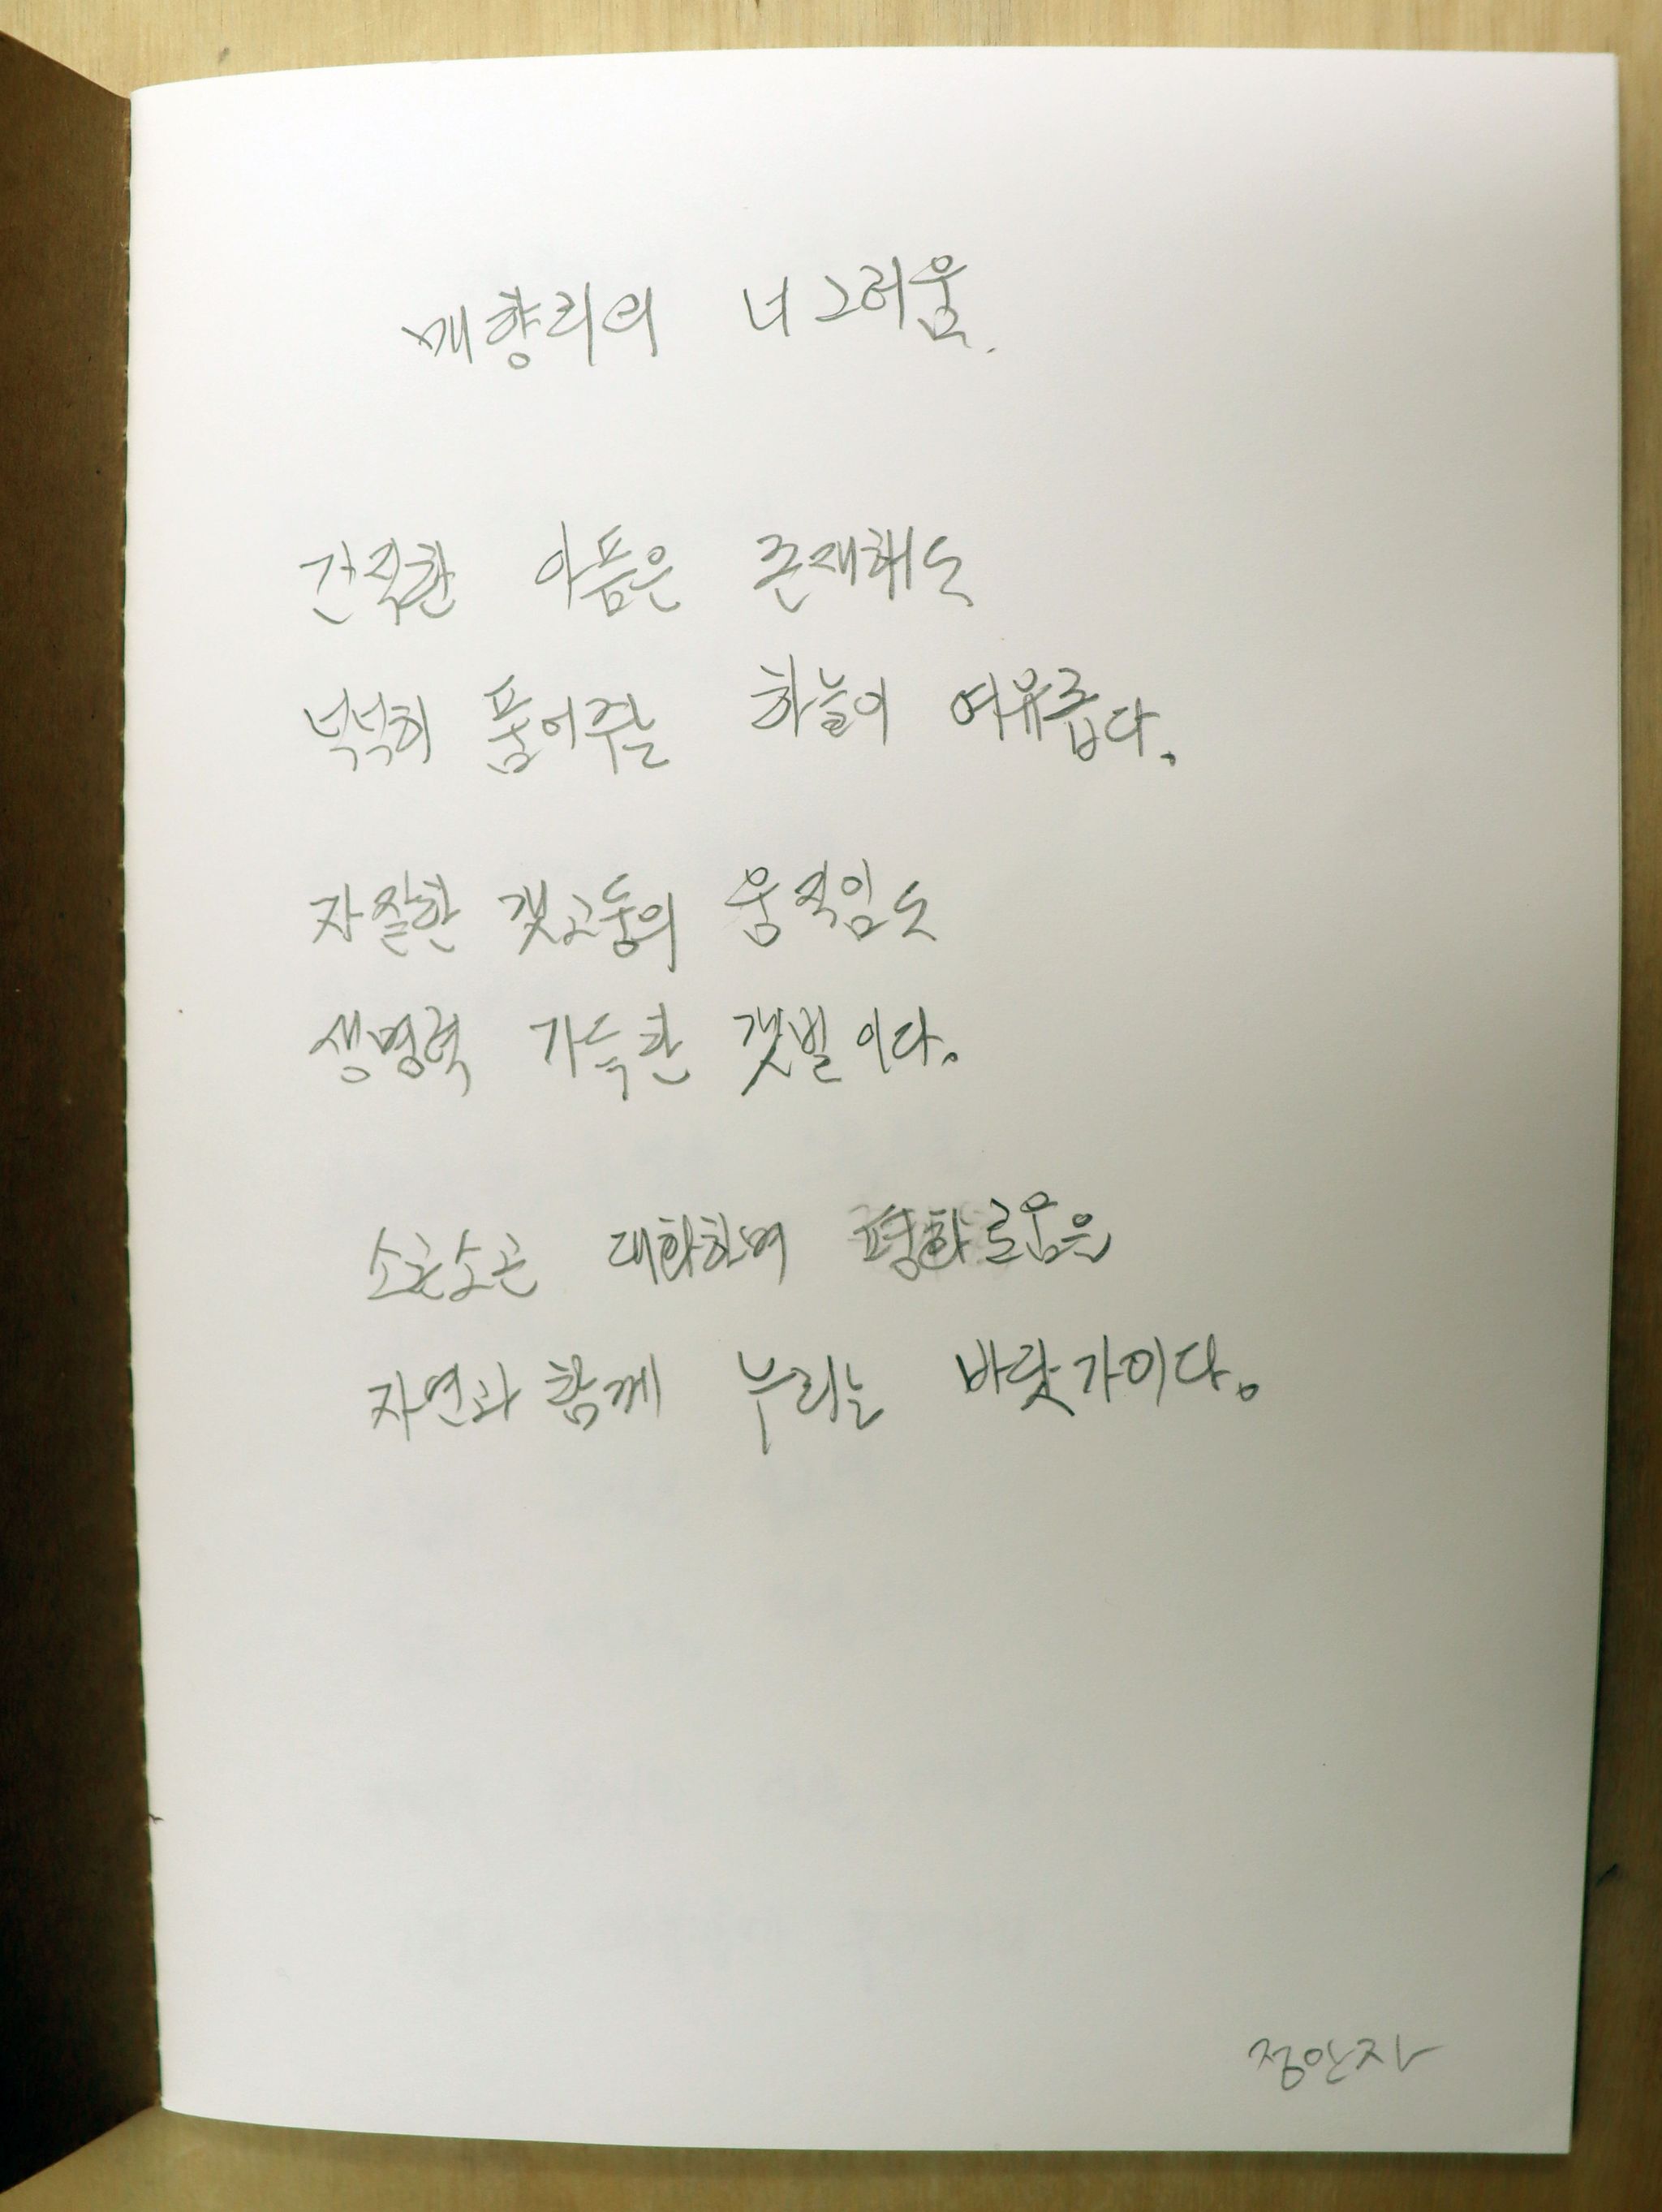 매향리의 너그러움.
아픔은 존재해도
넉넉히 품어주는 하늘이 여유롭다.
자잘한 갯고둥의 움직임도
생명력 가득한 갯벌이다.
소곤소곤 대화하며 평화로움은
자연과 함께 누리는 바닷가이다.
정안자